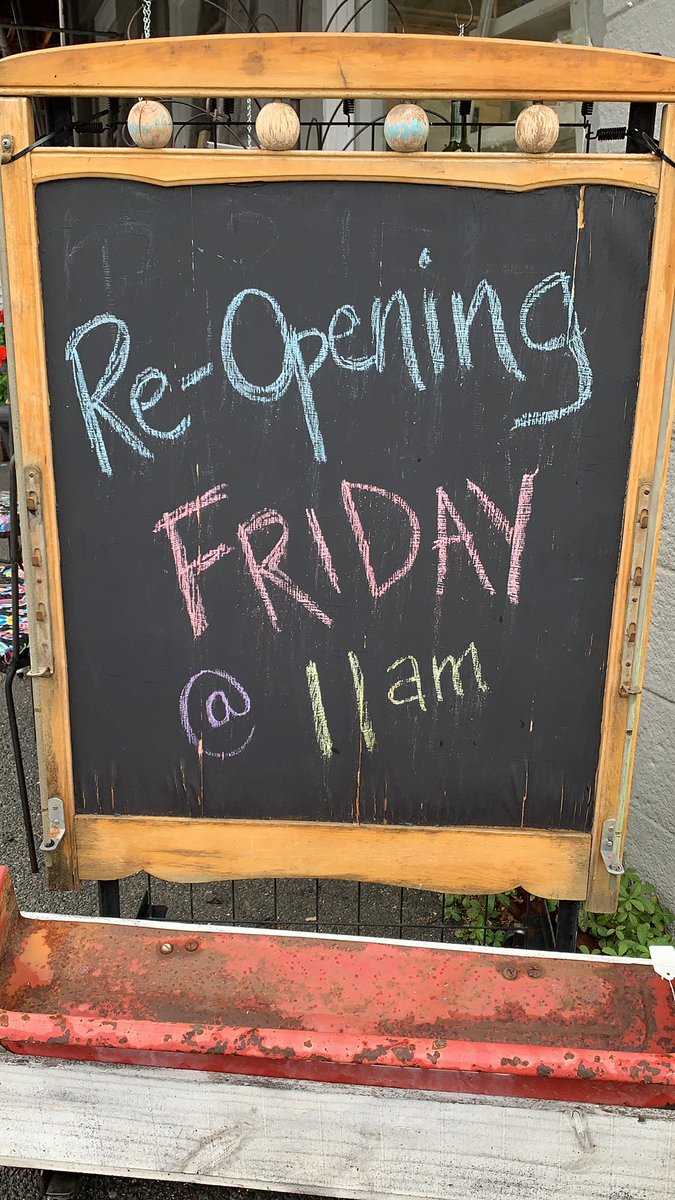 Re-Opening
FRIDAY
@ 11am